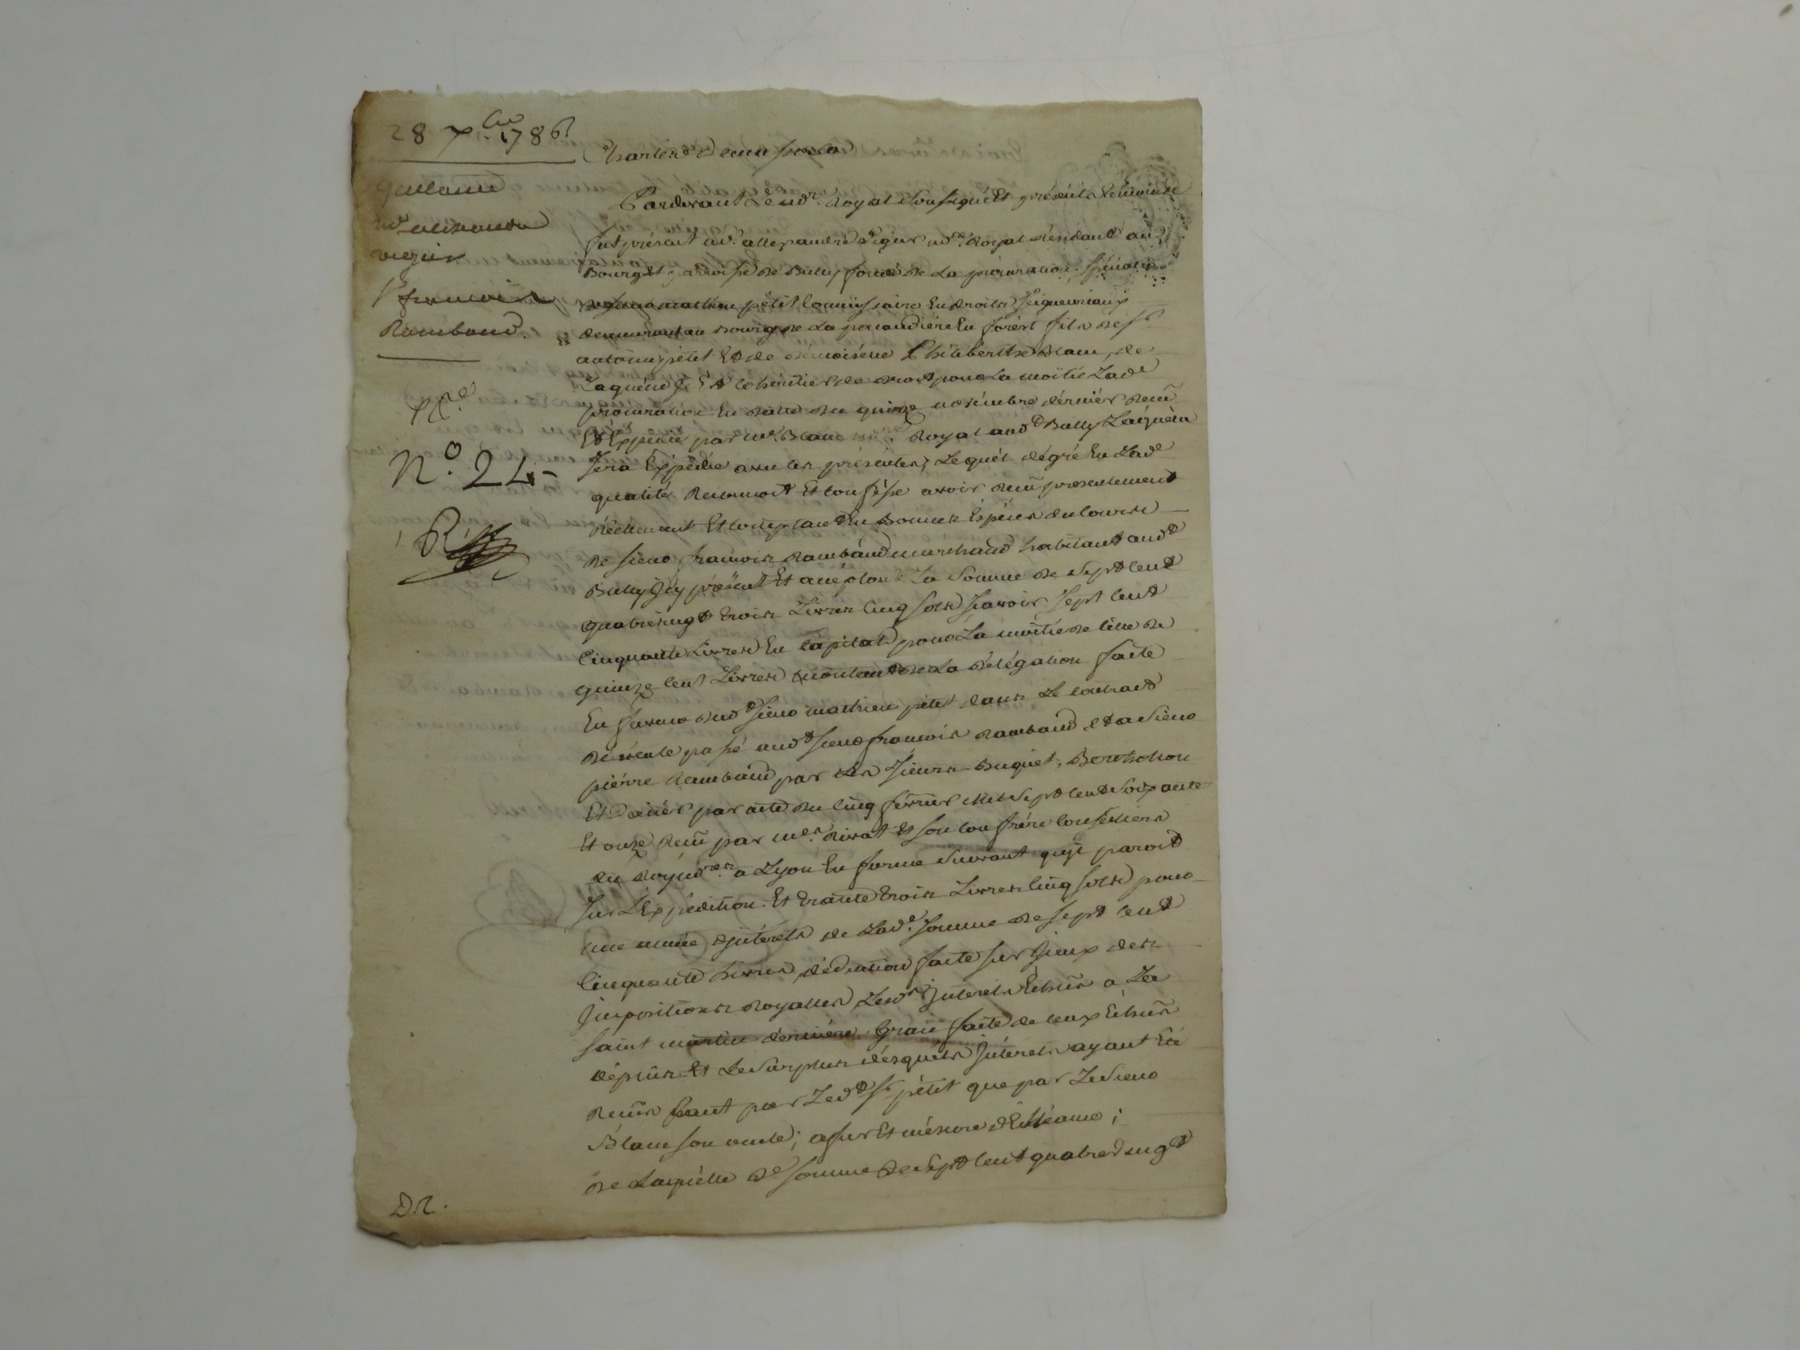 28 xbre 1786
quittance
me alexandre
vegier
Sr francois
Rambaud.
No. 24
D.R.
Pardevant Le nre. Royal Soussigné Et présents Témoins
fut présent me. allexandre vegier nre. Royal résidant au
Bourg Et parroisse de Bully fondé de La procuration spéciale
mathieu petit Commissaire En droits Seigneuriaux
demeurant au Bourg de La pacaudiére En forést fils de Sr
antoine pétit Et de démoiselle Philiberthe Blanc, de
Laquélle il Est cohéritier de droit pour La moitié Lade
procuration En datte du quinze novémbre dérniér recuë
Et Expédiée par me. Blanc nre. Royal audt Bully Laquélle
séra Expédiée avec les présentes; Lequél dégré En Lade
qualité Reconnoit Et confésse avoir recu présentement
réellement Et comptant En Bonnes Espéces du Cours
de sieur francois Rambaud marchand habitant audt
Bully Icy présent Et acceptant La Somme de Sept Cent
quatrevingt trois Livres Cinq sols scavoir Sept Cent
Cinquante Livres En Capital pour La moitié de Célle de
quinze Cent Livres montant de La délégation faite
En faveur dudt sieur mathieu pétit dans Le Contract
de vénte passé audt sieur francois Rambaud et a sieur
piérre Rambaud par Les sieurs Buquet, Berthollon
Et par acte du Cinq févriér mil Sept Cent Soixante
Et onze recu par mes. Et son Confrére Conseillers
du Roy nores. a Lyon En forme suivant qu'il paroit
sur L'Expédition. Et trante trois Livres Cinq sols pour
une année d'jnterets de Lade. somme de sept Cent
Cinquante Livres déduction faite sur Iceux des
Impositions Royalles Lesds Jnterets Echus a La
saint martin derniere, Grace faite de ceux Echus
dépuis Et Le Surplus désquéls Jnterets ayant Eté
recus tant par Ledt sr pétit que par Le Sieur
Blanc son oncle; a fur Et mésure d'Echéance;
de Laquélle de somme de Sept Cent quatrevingt